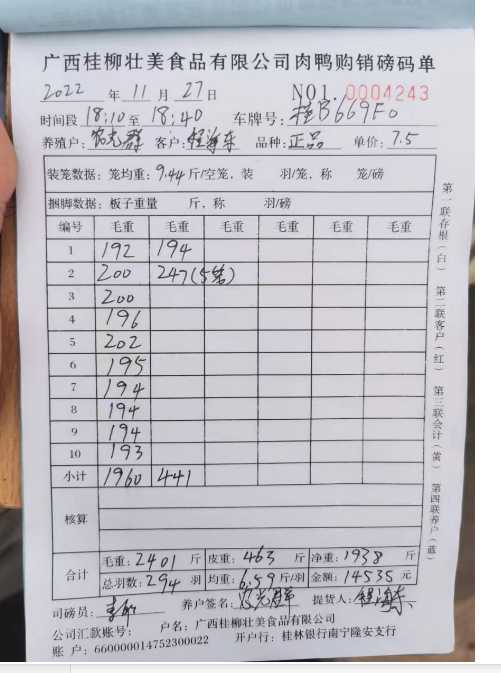 广西桂柳壮美食品有限公司肉鸭购销磅码单
2022 年 11 月 27 日 NO1. 0004243
时间段 18:10 至 18:40 车牌号: 桂B669F0
养殖户: 农光群 客户: 程海东 品种: 正品 单价: 7.5
装笼数据: 笼均重: 9.44 斤/空笼, 装 羽/笼, 称 笼/磅
捆脚数据: 板子重量 斤, 称 羽/磅
编号 毛重 毛重 毛重 毛重 毛重 毛重
1 192 194
2 200 247(5笼)
3 200
4 196
5 202
6 195
7 194
8 194
9 194
10 193
小计 1960 441
核算
合计 毛重: 2401 斤 皮重: 463 斤 净重: 1938 斤
总羽数: 294 羽 均重: 6.59 斤/羽 金额: 14535 元
司磅员: 养户签名: 农光群 提货人: 程海东
公司汇款账号: 户名: 广西桂柳壮美食品有限公司
账 户: 660000014752300022 开户行: 桂林银行南宁隆安支行
第一联存根(白) 第二联客户(红) 第三联会计(黄) 第四联养户(蓝)